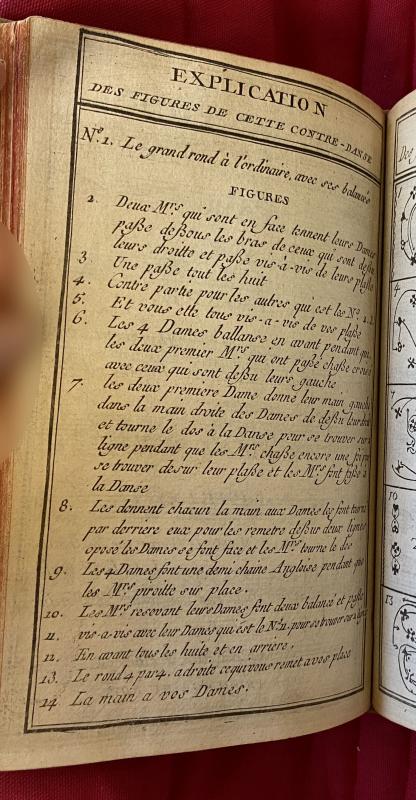 EXPLICATION
DES FIGURES DE CETTE CONTRE-DANSE
N.º 1. Le grand rond à l'ordinaire, avec ses balancés
FIGURES
2. Deux M.rs qui sont en face tennent leurs Dames
paße deßous les bras de ceux qui sont deßu
leurs droitte et paße vis-à-vis de leurs plaße
3. Une paße tout les huit
4. Contre partie pour les autres qui est les Nº. 2.
5. Et vous ette tous vis-a-vis de vos plaße
6. Les 4 Dames ballanse en avant pendant que
les deux premier M.rs qui ont paßé chaße
avec ceux qui sont deßu leurs gauche
7. les deux premiere Dame donne leur main gauche
dans la main droite des Dames de deßu leur
et tourne le dos à la Danse pour se trouver sur
ligne pendant que les M.rs chaße encore une fois
se trouver desur leur plaße et les M.rs font faße à
la Danse
8. Les donnent chacun la main aux Dames les font tourne
par derriere eux pour les remetre deßus deux lignes
oposé les Dames se font face et les M.rs tourne le dos
9. Les 4 Dames font une demi chaine Angloise pendant que
les M.rs piroitte sur place.
10. Les M.rs resevant leurs Dames font deux balancé et paße
11. vis-a-vis avec leur Dames qui est le Nº 11. pour se trouver sur
12. En avant tous les huite et en arriere.
13. Le rond 4 par 4. a droite ce qui vous remet a vos place
14 La main a vos Dames.
Des
4
7
10
13